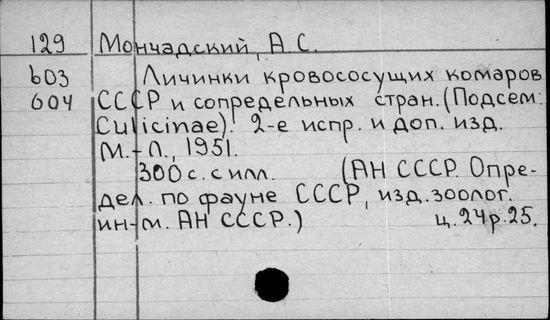 129 Мончадский, А.С.
603 Личинки кровососущих комаров
604 СССР и сопредельных стран. (Подсем:
Culicinae). 2-е испр. и доп. изд.
М.-Л., 1951.
300 с. с илл. (АН СССР. Опре-
дел. по фауне СССР, изд. зоолог.
ин-м. АН СССР.) ц. 24р.25.